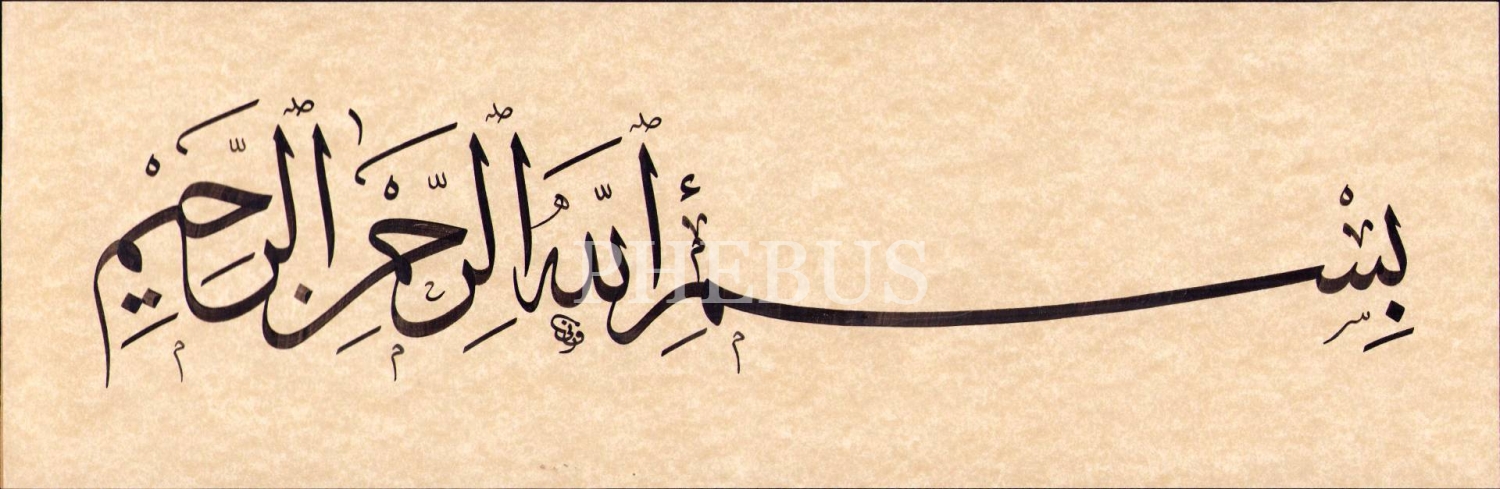 بِسْمِ اللَّهِ الرَّحْمَٰنِ الرَّحِيمِ
PHEBUS